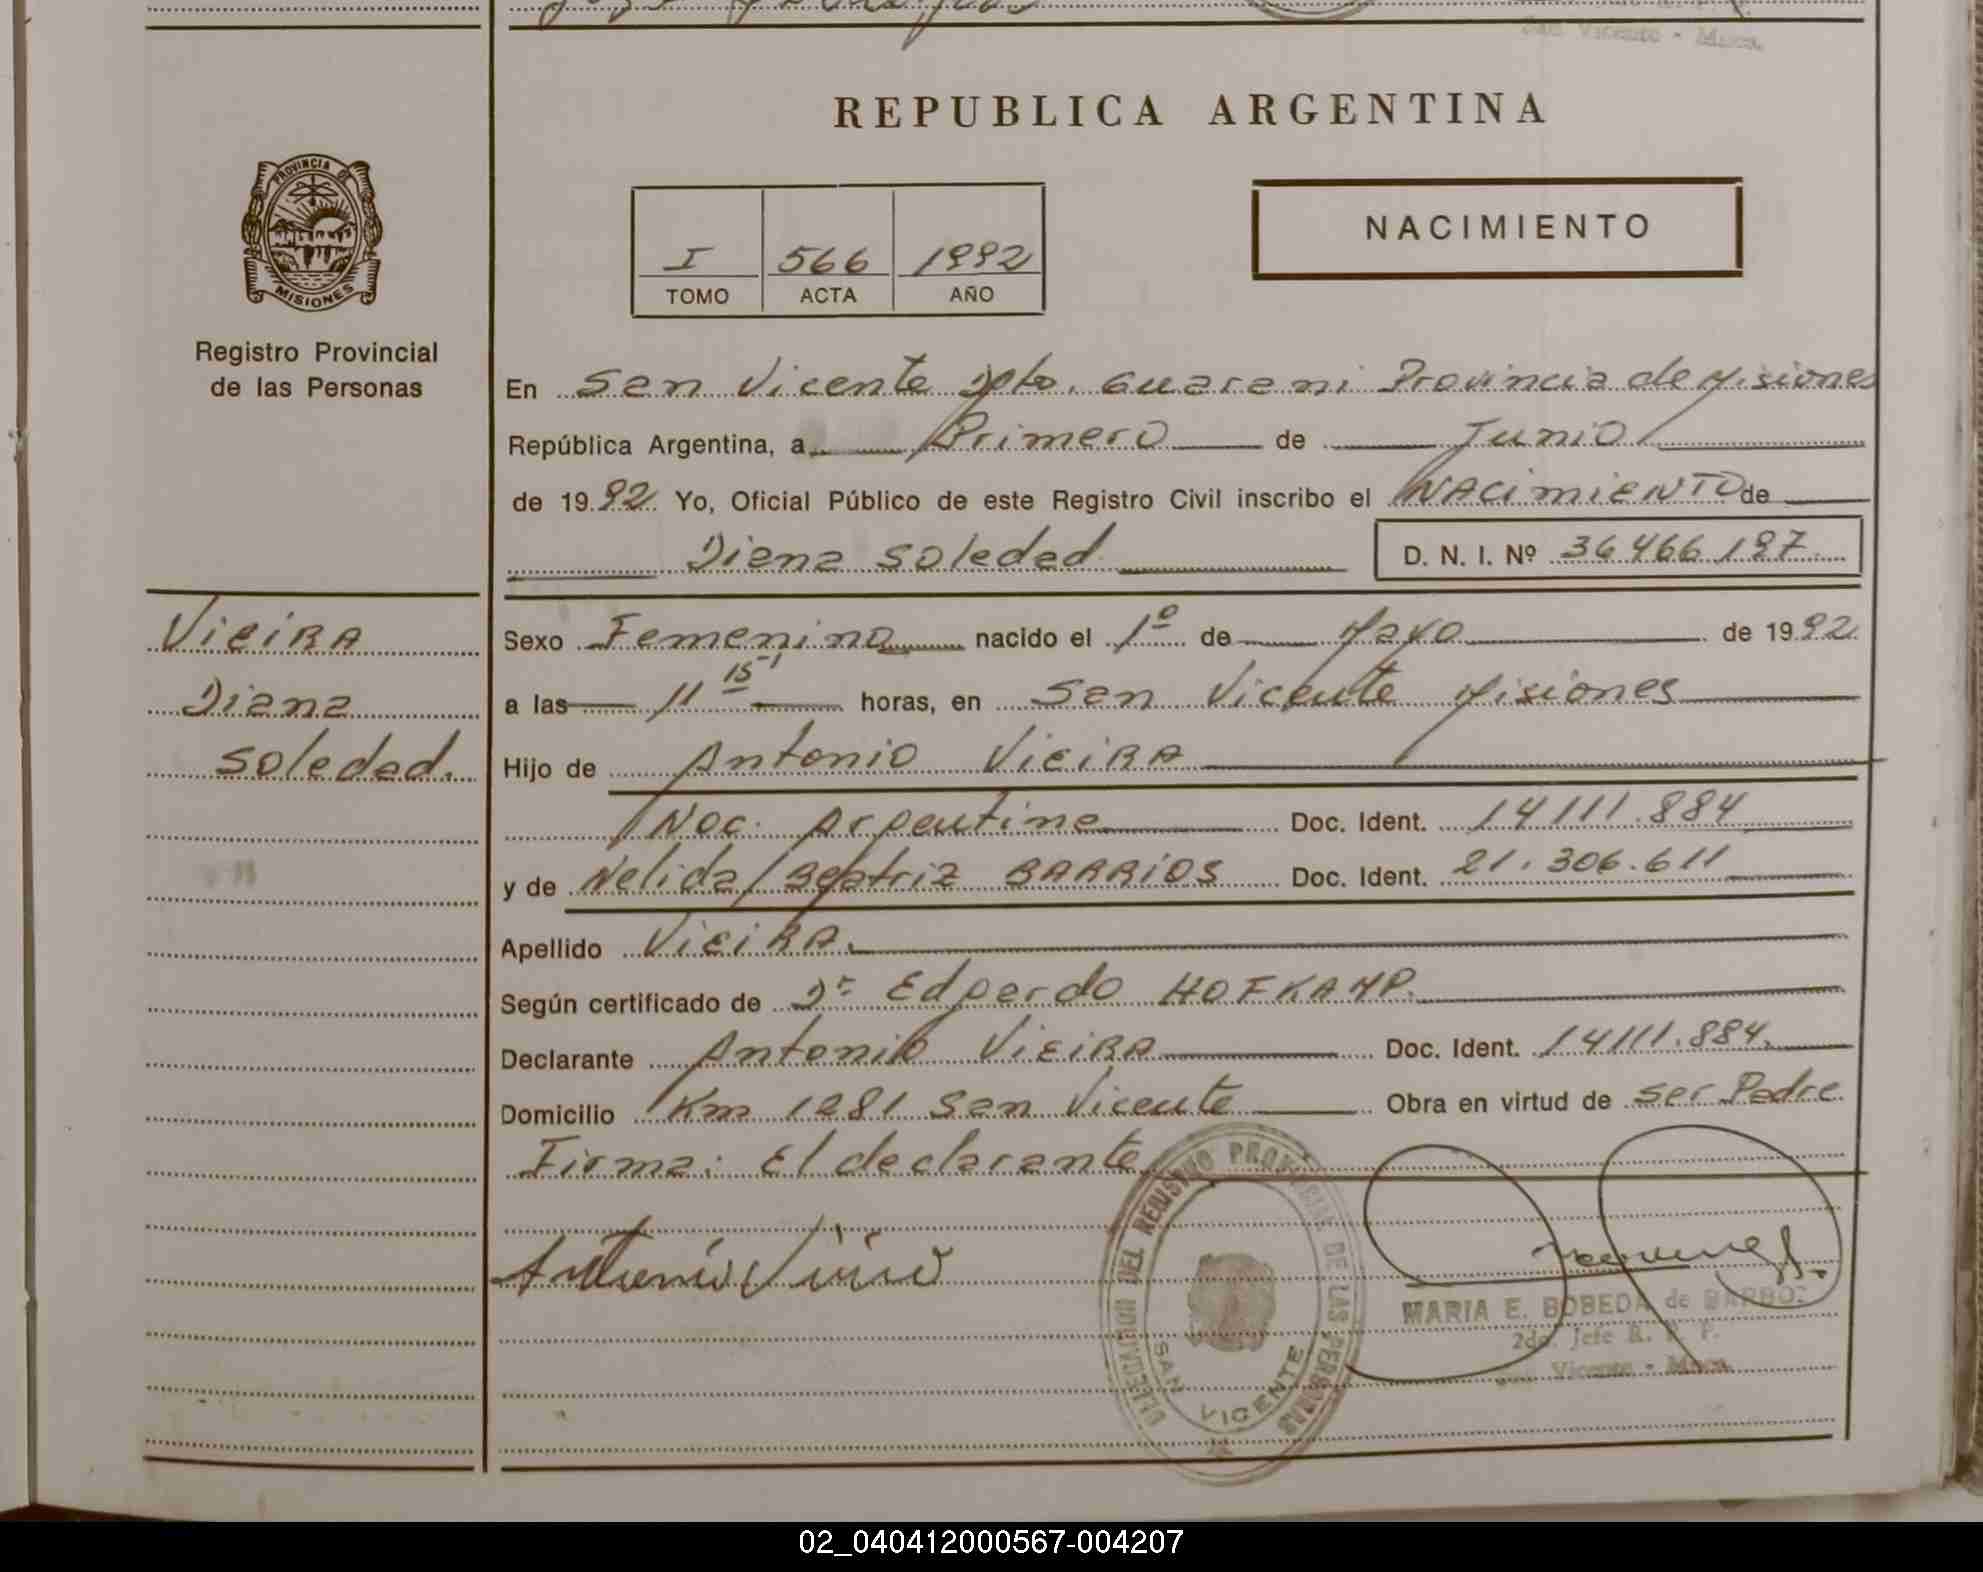 San Vicente - Mnes.
REPUBLICA ARGENTINA
PROVINCIA DE
MISIONES
Registro Provincial
de las Personas
I 566 1992
TOMO ACTA AÑO
NACIMIENTO
En San Vicente Dpto. Guarani Provincia de Misiones
República Argentina, a Primero de Junio
de 1992 Yo, Oficial Público de este Registro Civil inscribo el NACIMIENTO de
Diana Soledad D. N. I. Nº 36466197
VIEIRA
Diana
Soledad.
Sexo Femenino nacido el 1º de Mayo de 1992
a las 11 15' horas, en San Vicente Misiones
Hijo de Antonio VIEIRA
Nac. Argentina Doc. Ident. 14111.884
y de Nelida Beatriz BARRIOS Doc. Ident. 21.306.611
Apellido VIEIRA.
Según certificado de Dr Edgardo HOFKAMP.
Declarante Antonio VIEIRA Doc. Ident. 14111.884.
Domicilio Km 1281 San Vicente Obra en virtud de ser Padre
Firma: El declarante
DIRECCION DEL REGISTRO PROVINCIAL DE LAS PERSONAS
SAN VICENTE
MARIA E. BOBEDA de BARBOZ
2do. Jefe R. P. P.
San Vicente - Mnes.
02_040412000567-004207